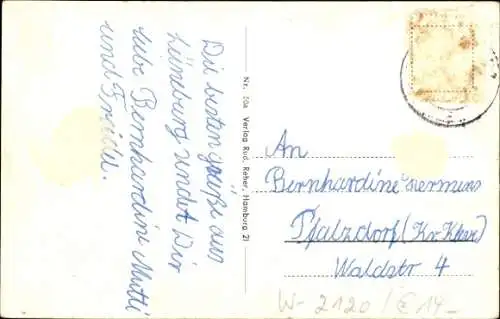 Die besten Grüße aus
Lüneburg sendet Dir
liebe Bernhardine Mutti
und Friedel.
Nr. 10a Verlag Rud. Reher, Hamburg 21
An
Bernhardine Hermens
Pfalzdorf (Kr. Kleve)
Waldstr 4
W-2120/€ 14,-